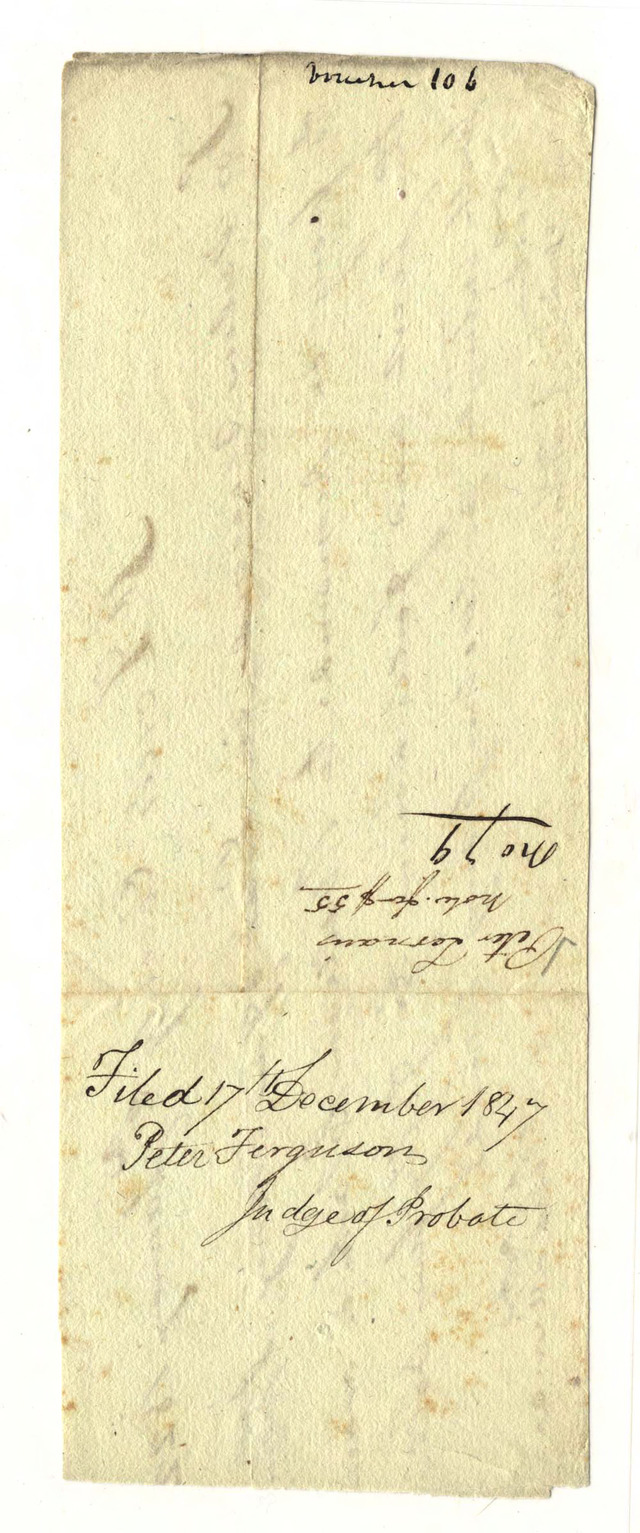 Voucher 106
Peter
note for $55
No 79
Filed 17th December 1847
Peter Ferguson
Judge of Probate